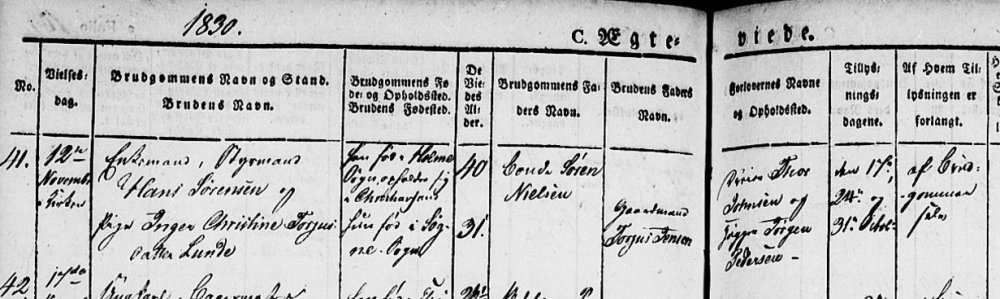 1830.
C. Ægte-
viede.
No.
Vielses-
dag.
Brudgommens Navn og Stand.
Brudens Navn.
Brudgommens Fø-
de- og Opholdssted.
Brudens Fødested.
De
Vie-
des
Al-
der.
Brudgommens Fa-
ders Navn.
Brudens Faders
Navn.
Forlovernes Navne
og Opholdssted.
Tillys-
nings-
dagene.
Af Hvem Til-
lysningen er
forlangt.
41.
12te
Novembr
Enkemand, Styrmand
Hans Sørensen og
Pige Inger Christine Torjus
datter Lunde
han fød i Holme
Sogn opholder sig
i Christiansand
hun fød i Søg-
ne Sogn
40
31.
Bonde Søren
Nielsen
Gaardmand
Torjus Jensen
og
Jørgen
Pedersen
den 17de,
24de og
31te Octobr
af Brud-
gommen
selv
42